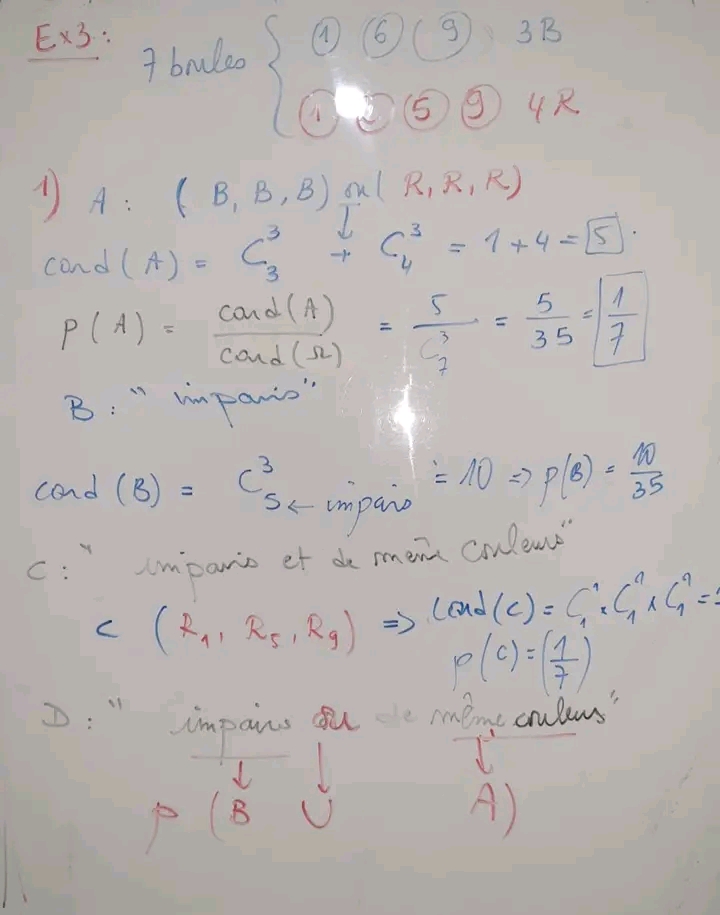 Ex3:
7 boules { ① ⑥ ⑨ 3B
① ② ⑤ ⑨ 4R
1) A : ( B, B, B) ou ( R, R, R)
↓
card (A) = C₃³ + C₄³ = 1 + 4 = 5.
p (A) = card(A) / card(Ω) = 5 / C₇³ = 5/35 = 1/7
B : " impairs"
card (B) = C₅³ ← impairs = 10 => p(B) = 10/35
C : " impairs et de même couleurs"
C (R₁, R₅, R₉) => card(C) = C₁¹ × C₁¹ × C₁¹ =
p(C) = (1/7)
D : " impairs ou de même couleurs"
↓ ↓ ↓
p (B ∪ A)